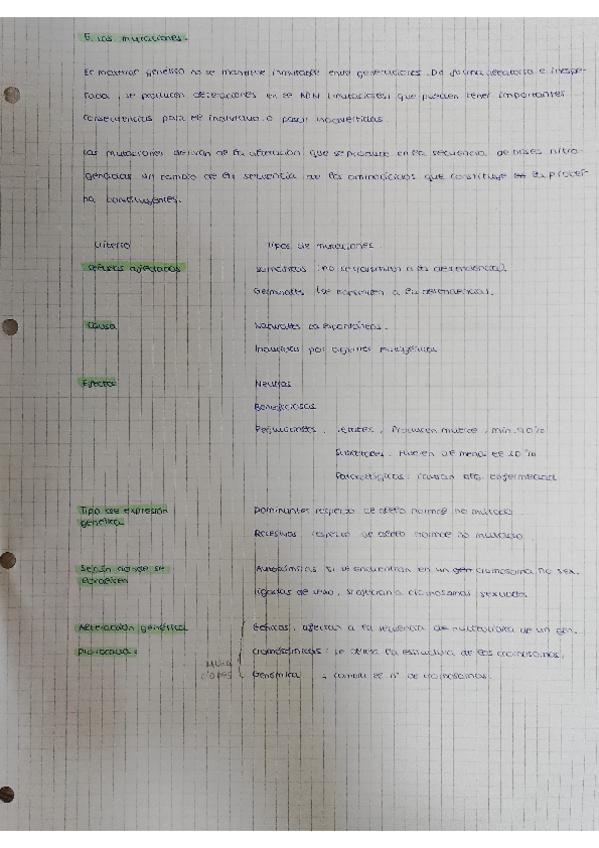 5. Las mutaciones.
El material genético no se mantiene inmutable entre generaciones. De forma aleatoria e inespe-
rada, se producen alteraciones en el ADN (mutaciones) que pueden tener importantes
consecuencias para el individuo o pasar inadvertidas.
Las mutaciones derivan de la alteración que se produce en la secuencia de bases nitro-
genadas un cambio de la secuencia de los aminoácidos que constituye la proteí-
na
Criterio Tipos de mutaciones
Células afectadas Somáticas no se transmiten a la descendencia).
Germinales las transmiten a la descendencia.
Causa Naturales o espontáneas.
Inducidas por agentes mutagénicos
Efectos Neutras
Beneficiosas
Perjudiciales. Letales, Producen muerte, mín. 90%
Subletales. mueren de 10%
Patológicas: causan alg. enfermedad
Tipo de expresión Dominantes respecto de alelo normal no mutado
genética
Recesivas respecto de alelo normal no mutado.
Según donde se Autosómicas si se encuentran en un gen cromosoma no sex.
localicen
ligadas al sexo, si afectan a cromosomas sexuales.
Alteración genética Génicas, afectan a la secuencia de nucleótidos de un gen.
provocada: Cromosómicas: se altera la estructura de los cromosomas.
Muta
ciones Genómica, cambia el nº de cromosomas.